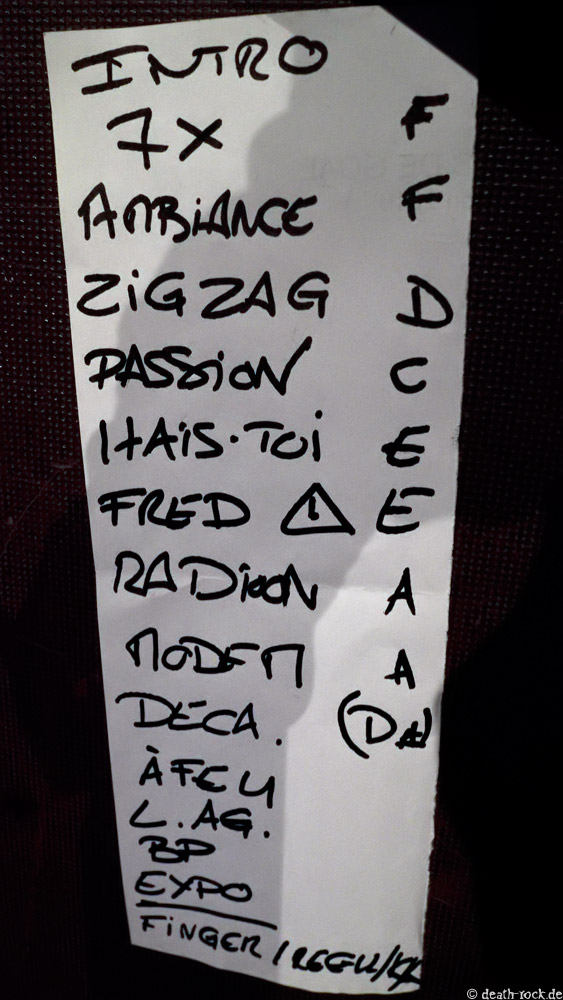 INTRO
7X F
AMBiANCE F
ZiGZAG D
PASSiON C
HAiS-TOi E
FRED ! E
RADiOON A
MODEM A
DECA. (D#)
À FEU
L.AG.
BP
EXPO
FiNGER /
© death-rock.de